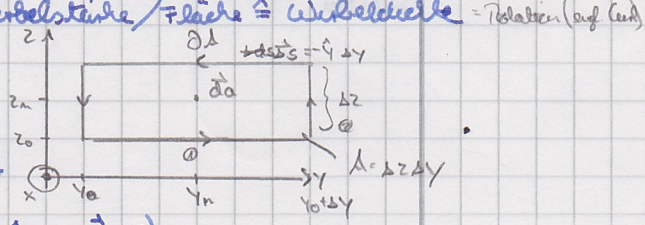 Wirbelstärke/Fläche ≙ Wirbeldichte = Rotation (engl. Curl)
z ∂A
Δs⃗ = -ŷ Δy
da⃗
z_m Δz
②
z₀
① A = Δz Δy
x y₀ y_m y₀+Δy y